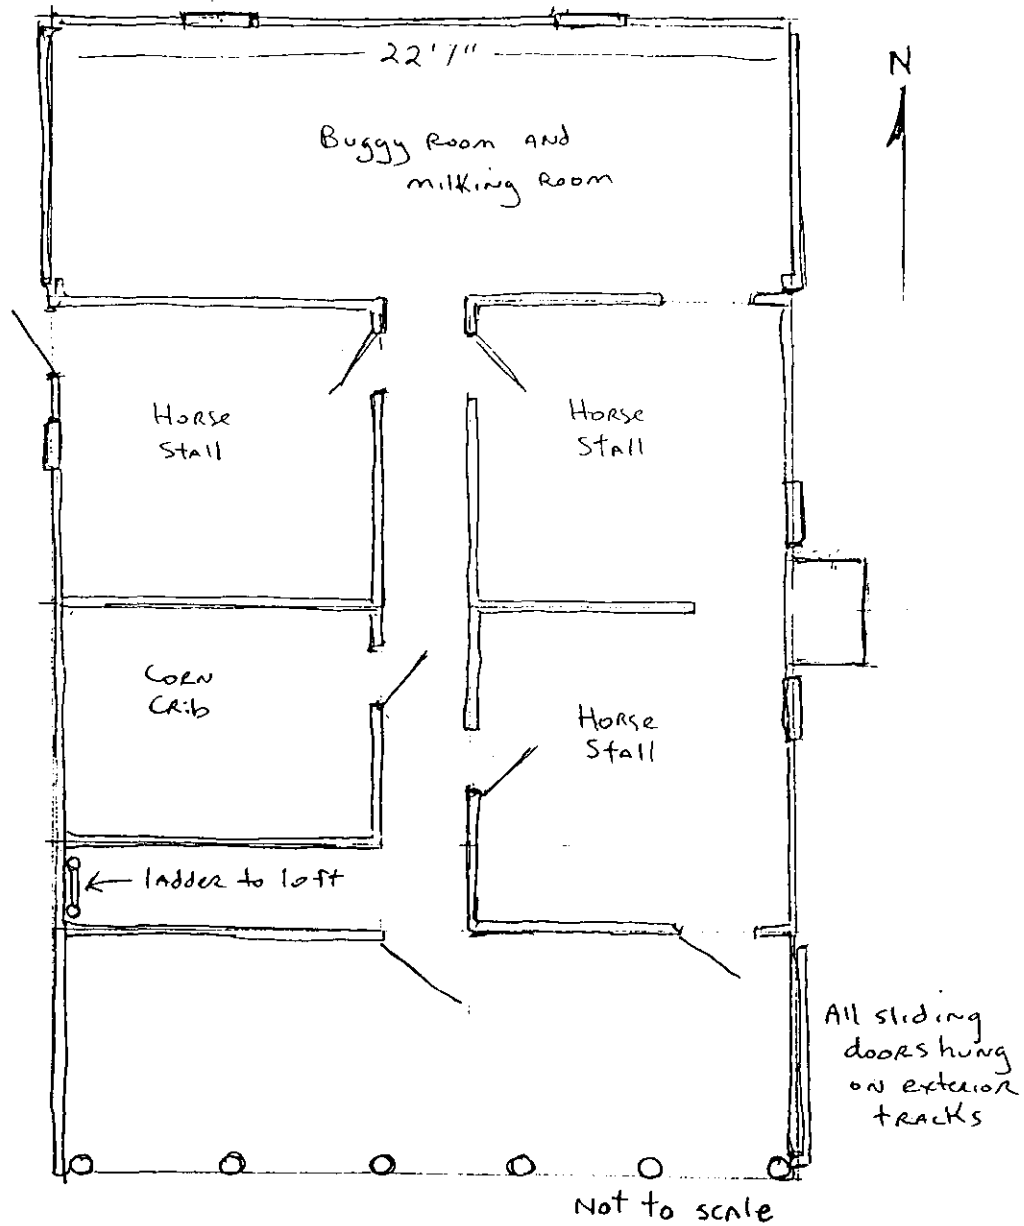 22'1"
N
Buggy Room and
milking Room
Horse
Stall
Horse
Stall
Corn
Crib
Horse
Stall
ladder to loft
All sliding
doors hung
on exterior
tracks
Not to scale